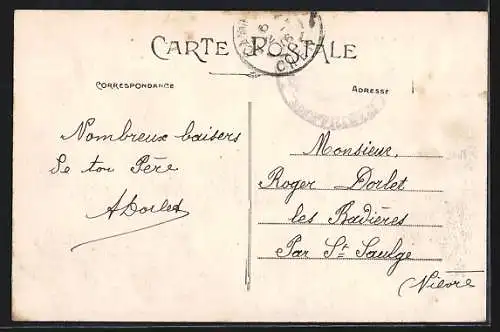 CARTE POSTALE
CORRESPONDANCE
ADRESSE
Nombreux baisers
De ton Père
ADorlet
Monsieur,
Roger Dorlet
les Badières
Par St Saulge
Nièvre